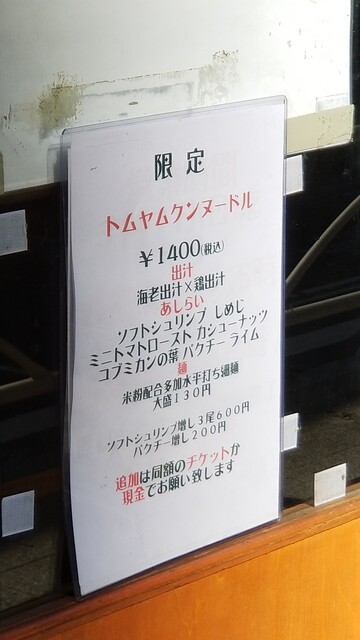 限定
トムヤムクンヌードル
￥1400(税込)
出汁
海老出汁×鶏出汁
あしらい
ソフトシュリンプ しめじ
ミニトマトロースト カシューナッツ
コブミカンの葉 パクチー ライム
麺
米粉配合多加水平打ち細麺
大盛130円
ソフトシュリンプ増し3尾600円
パクチー増し200円
追加は同額のチケットか
現金でお願い致します